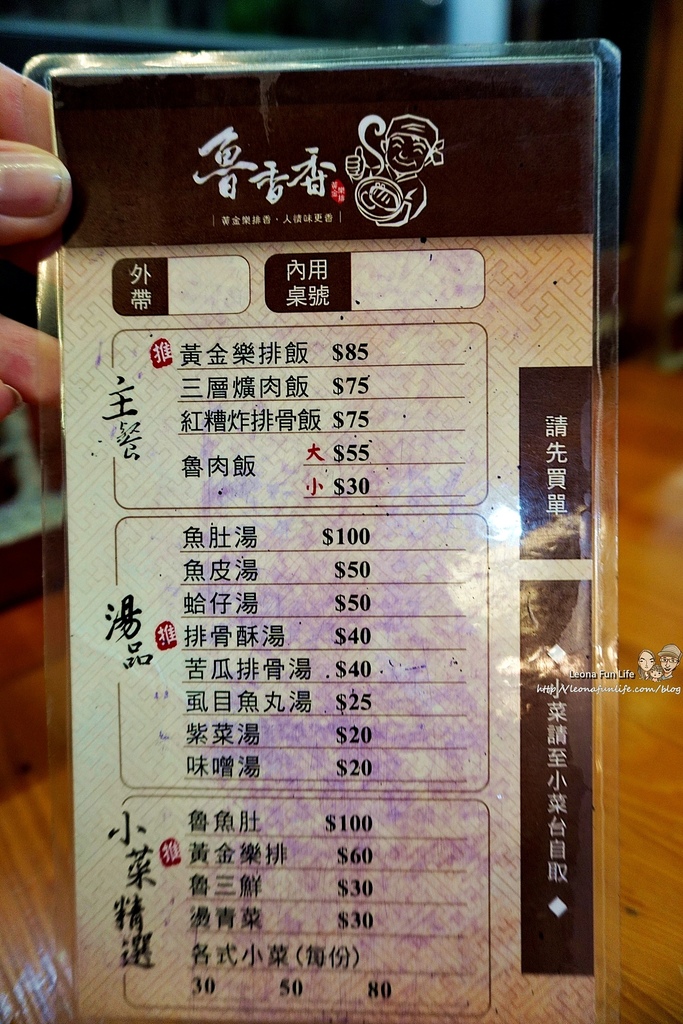 魯香香
黃金樂排
黃金樂排香・人情味更香
外帶
內用桌號
主餐
推 黃金樂排飯 $85
三層爌肉飯 $75
紅糟炸排骨飯 $75
魯肉飯 大 $55
小 $30
湯品
魚肚湯 $100
魚皮湯 $50
蛤仔湯 $50
推 排骨酥湯 $40
苦瓜排骨湯 $40
虱目魚丸湯 $25
紫菜湯 $20
味噌湯 $20
小菜精選
魯魚肚 $100
推 黃金樂排 $60
魯三鮮 $30
燙青菜 $30
各式小菜(每份)
30 50 80
請先買單
◆小菜請至小菜台自取◆
Leona Fun Life
http://leonafunlife.com/blog